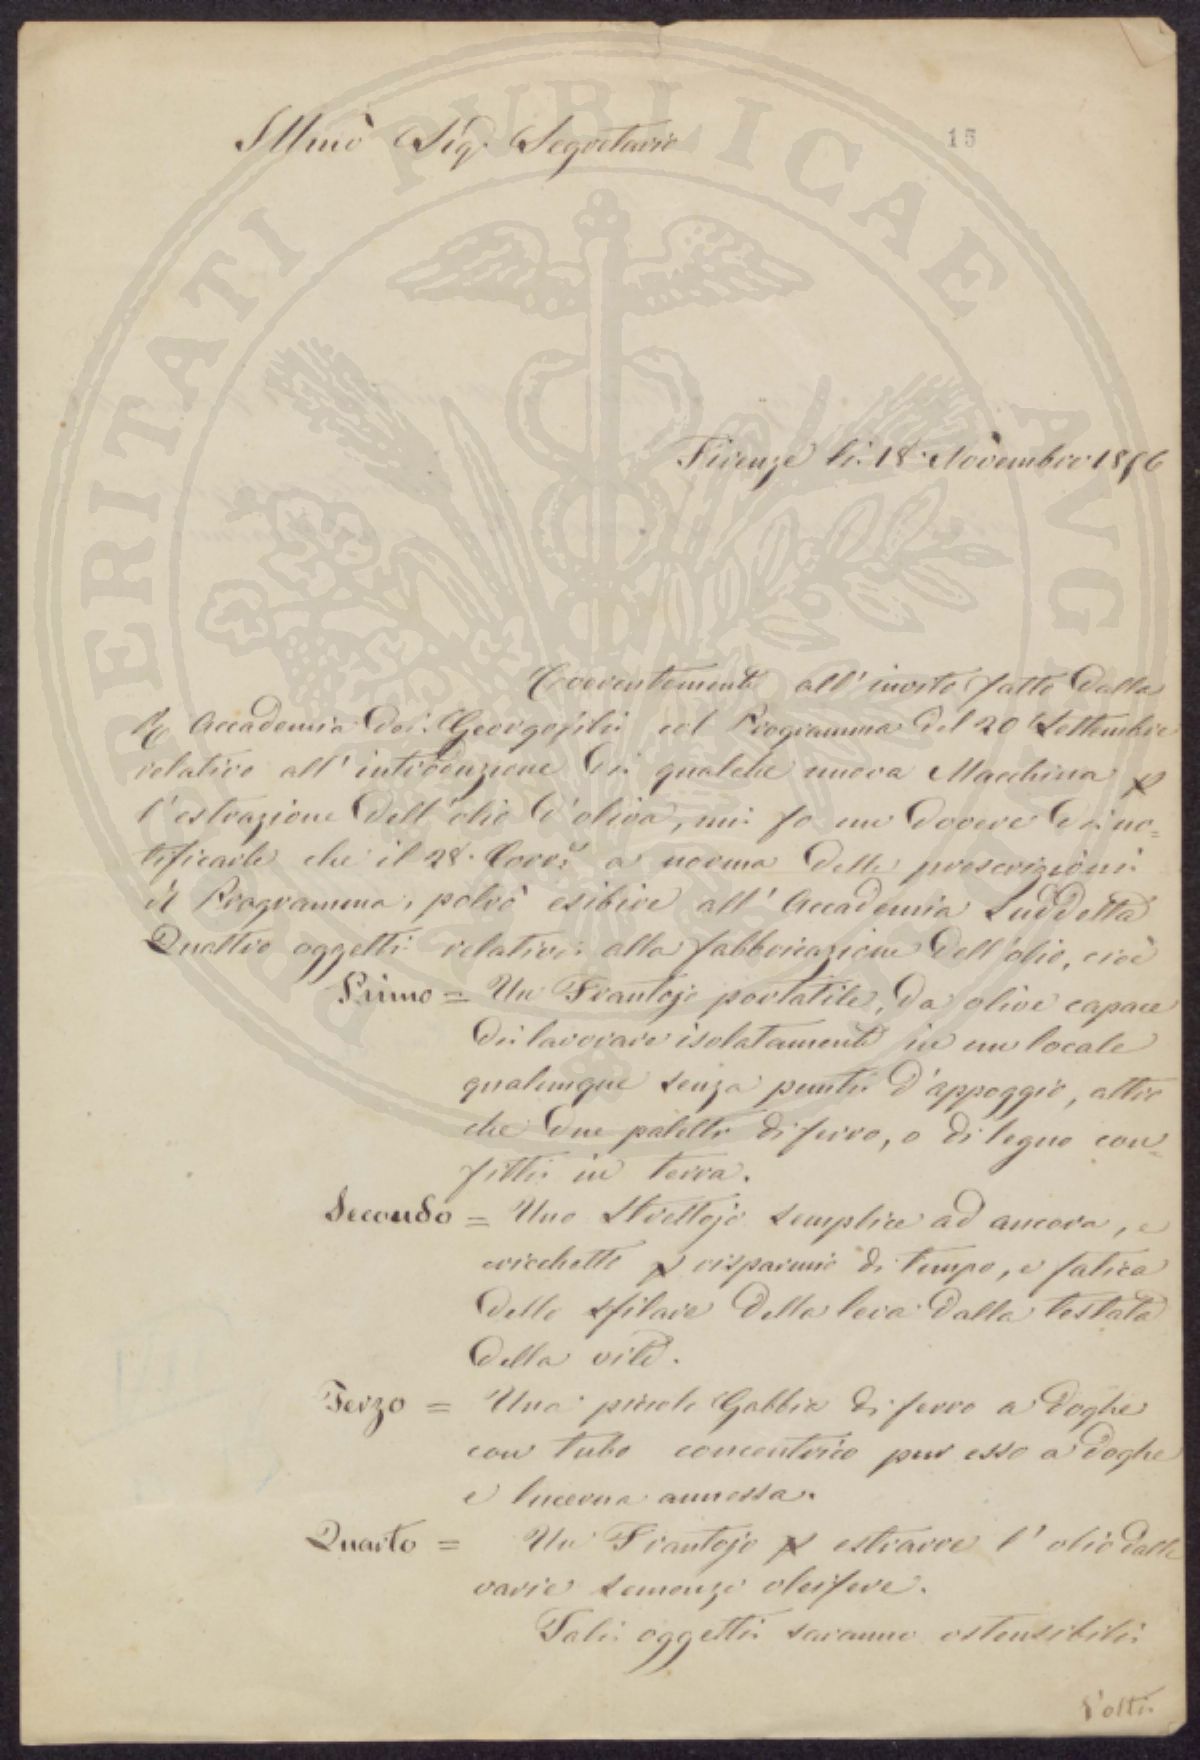 Illmo Sig. Segretario
15
Firenze li 18 Novembre 1856
Coerentemente all' invito fatto dalla
R. Accademia dei Georgofili col Programma del 20 Settembre
relativo all' introduzione di qualche nuova Macchina p
l'estrazione dell'olio d'oliva, mi fo un dovere di no=
tificarle che il 28. Corr. a norma delle prescrizioni
di Programma, potrò esibire all' Accademia Suddetta
Quattro oggetti relativi alla fabbricazione dell'olio, cioè
Primo = Un Frantojo portatile, da olive capace
di lavorare isolatamente in un locale
qualunque senza punti d'appoggio, altro
che due paletti di ferro, o di legno con=
fitti in terra.
Secondo = Uno Strettojo semplice ad ancora, e
cricchetto p risparmio di tempo, e fatica
dello sfilare della leva dalla testata
della vite.
Terzo = Una piccola Gabbia di ferro a doghe
con tubo concentrico pur esso a doghe
e lucerna annessa.
Quarto = Un Frantojo p estrarre l' olio dalle
varie semenze oleifere.
Tali oggetti saranno ostensibili
Volti
PROSPERITATI PUBLICAE AUGENDAE